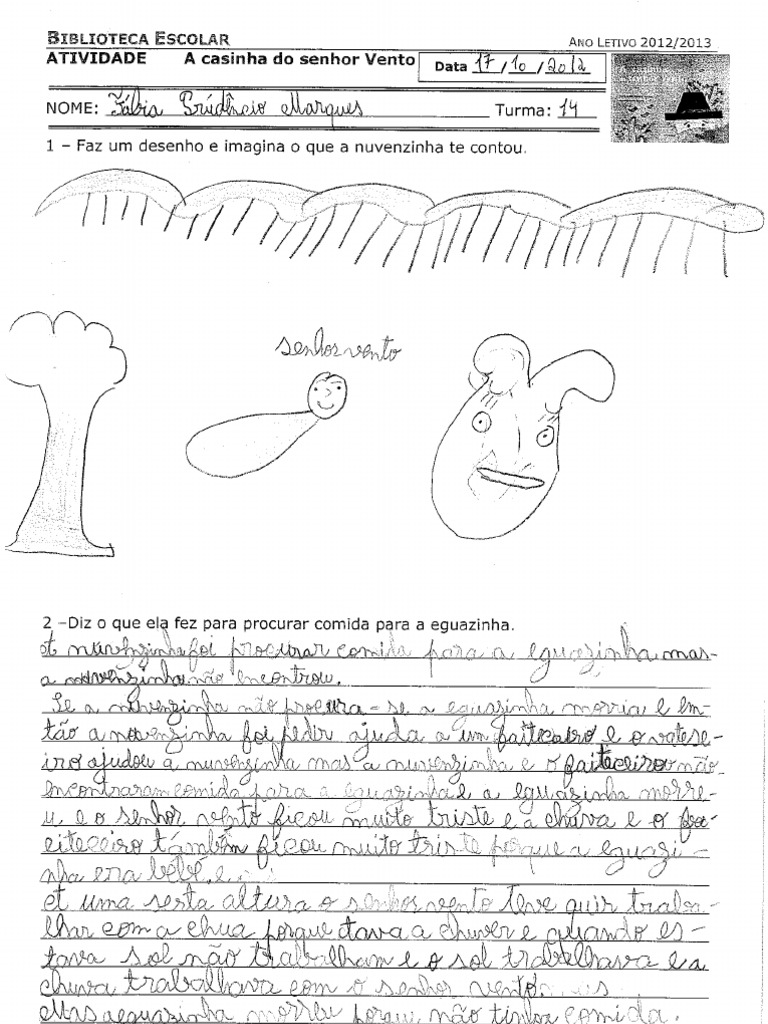 BIBLIOTECA ESCOLAR
ANO LETIVO 2012/2013
ATIVIDADE A casinha do senhor Vento
Data 17/10/2012
NOME: Fábia Prudêncio Marques Turma: 14
1 – Faz um desenho e imagina o que a nuvenzinha te contou.
senhor vento
2 –Diz o que ela fez para procurar comida para a eguazinha.
A nuvenzinha foi procurar comida para a eguazinha mas
a nuvenzinha não encontrou.
Se a nuvenzinha não procura-se a eguazinha morria e em-
tão a nuvenzinha foi pedir ajuda a um faiteceiro e o
iro ajudou a nuvenzinha mas a nuvenzinha e o faiteceiro não
encontraram comida para a eguazinha e a eguazinha morre-
u e o senhor vento ficou muito triste e a chuva e o
citeceiro também ficou muito triste porque a eguazi-
nha era bébé. e
A uma serta altura o senhor vento teve quir traba-
lhar com a chua porque tava a chuver e quando es-
tava sol não trabalham e o sol trabalhava e a
chuva trabalhava com o senhor vento.
Mas a eguazinha morreu porque não tinha comida.